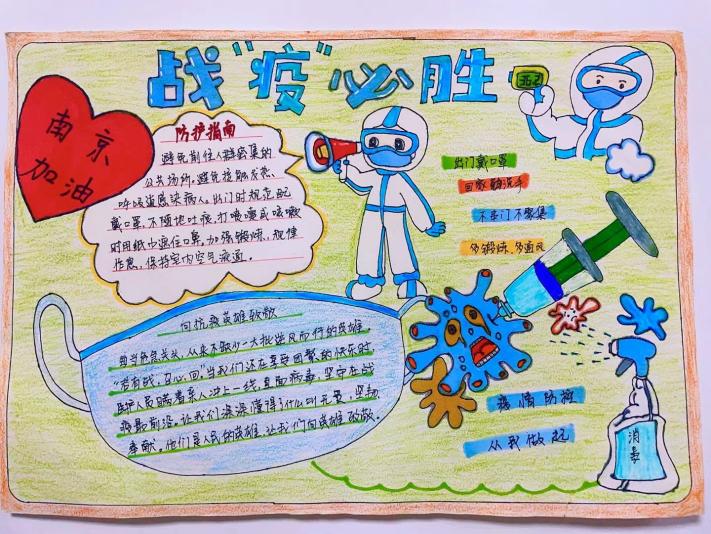 战"疫"必胜
36.2
南京
加油
防护指南
避免前往人群密集的
公共场所,避免接触发热、
呼吸道感染病人。出门时规范配
戴口罩,不随地吐痰,打喷嚏或咳嗽
时用纸巾遮住口鼻。加强锻炼,规律
作息,保持室内空气流通。
出门戴口罩
回家勤洗手
不串门不聚集
多锻炼、多通风
向抗疫英雄致敬
每当危急关头,从来不缺少一大批逆风而行的英雄
"若有战,召必回。"当我们还在享受团聚的快乐时
医护人员瞒着家人冲上一线,直面病毒,坚守在战
疫最前沿。让我们深深懂得了什么叫无畏,坚韧
奉献。他们是人民的英雄,让我们向英雄致敬。
疫情防控
从我做起
消毒